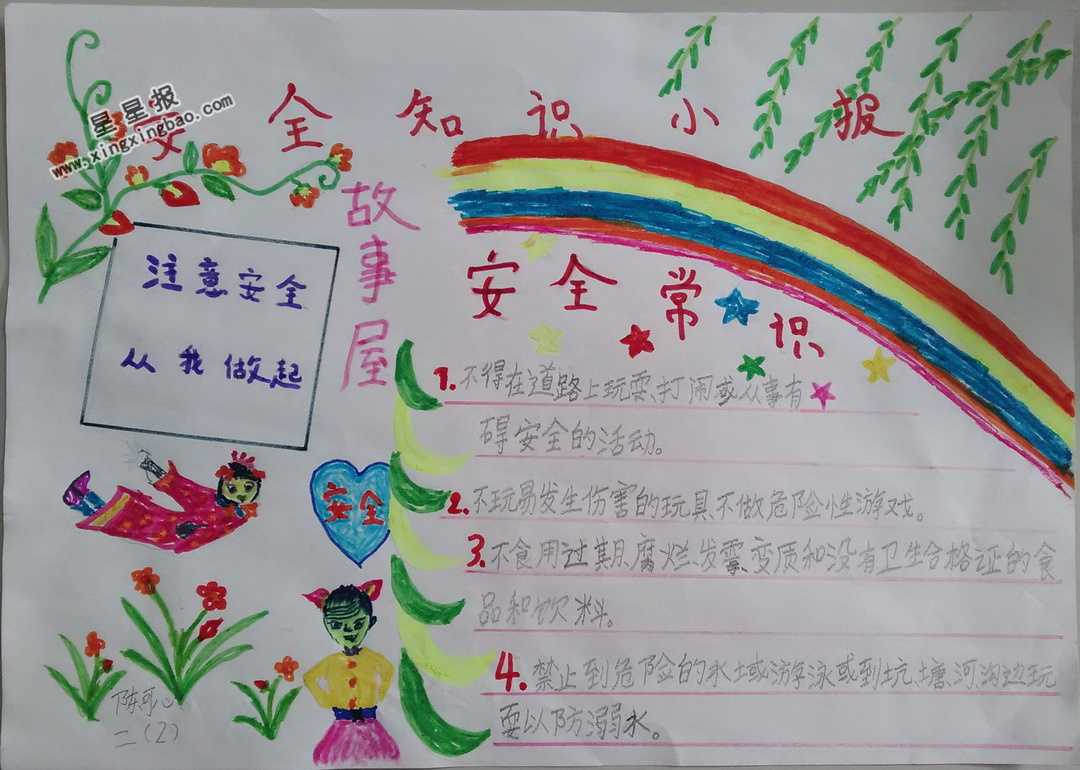 星星报
www.xingxingbao.com
安全知识小报
故事屋
注意安全
从我做起
安全常识
1.不得在道路上玩耍、打闹或从事有
碍安全的活动。
2.不玩易发生伤害的玩具、不做危险性游戏。
3.不食用过期、腐烂、发霉、变质和没有卫生合格证的食
品和饮料。
安全
4.禁止到危险的水域游泳或到坑、塘、河、沟边玩
耍以防溺水。
陈可心
二(2)